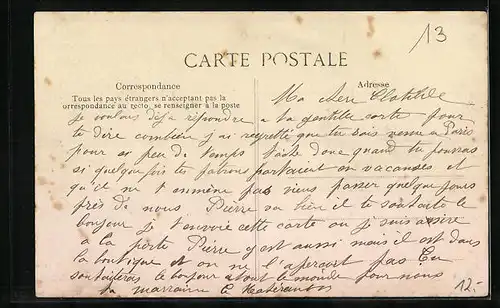 13
CARTE POSTALE
Correspondance
Adresse
Tous les pays étrangers n'acceptant pas la
correspondance au recto, se renseigner à la poste
Ma chère Clotilde
Je voulais déjà répondre a ta gentille carte pour
te dire combien j'ai regretté que tu sois venue a Paris
pour so peu de temps tâche donc quand tu pourras
si quelque fois tes patrons partaient en vacances et
qu'il ne t'emmène pas viens passer quelque jours
près de nous Pierre va bien il te souhaite le
bonjour je t'envoie cette carte ou je suis assise
a la porte Pierre y est aussi mais il est dans
la boutique et on ne l'aperçoit pas Tu
souhaiteras le bonjour a tout le monde pour nous
ta marraine
12.-